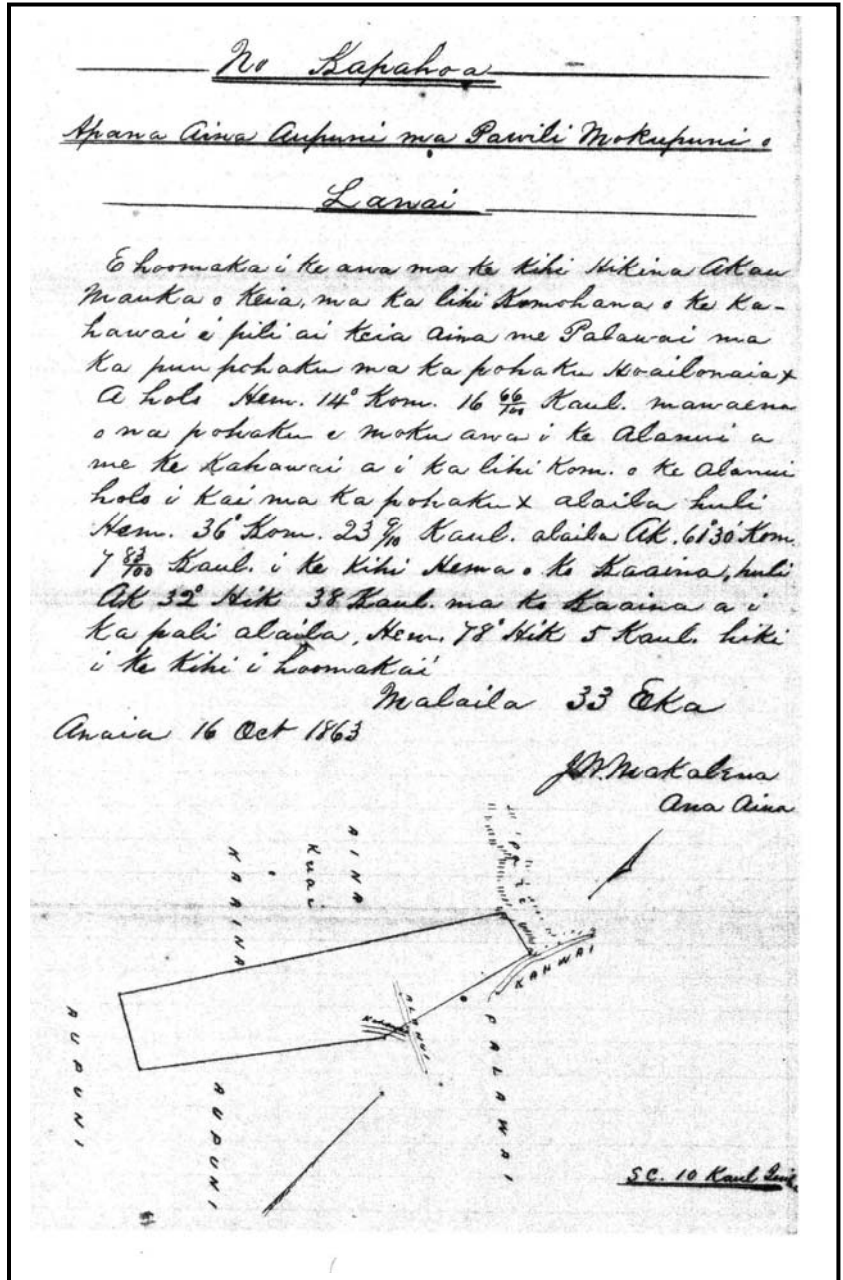 No Kapahoa
Apana Aina Aupuni ma Pawili Mokupuni o
Lanai
E hoomaka i ke ana ma ke kihi Hikina Akau
Mauka o keia, ma ka lihi Komohana o ke Ka-
hawai e pili ai keia aina me Palawai ma
ka puu pohaku ma ka pohaku Hoailonaia x
A holo Hem. 14° Kom. 16 66/100 Kaul. mawaena
o na pohaku e moku awa i ke Alanui a
me ke Kahawai a i ka lihi Kom. o ke Alanui
holo i kai ma ka pohaku x alaila huli
Hem. 36° Kom. 23 9/10 Kaul. alaila Ak. 61°30' Kom.
7 83/100 Kaul. i ke kihi Hema o ko Kaaina, huli
Ak 32° Hik 38 Kaul. ma ko Kaaina a i
ka pali alaila, Hem. 78° Hik 5 Kaul. hiki
i ke kihi i hoomakai
Malaila 33 Eka
Anaia 16 Oct 1863
J.W. Makalena
Ana Aina
AINA
Kuai
KAAINA
KAHWAI
ALANUI
PALAWAI
AUPUNI
AUPUNI
SC. 10 Kaul